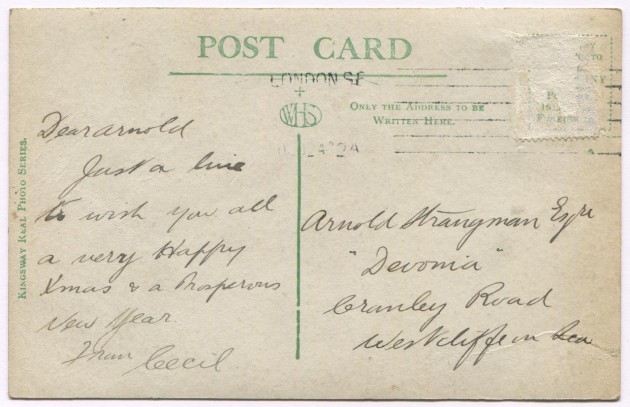 POST CARD
LONDON S.E
WHS
ONLY THE ADDRESS TO BE
WRITTEN HERE.
KINGSWAY REAL PHOTO SERIES.
Dear Arnold
Just a line
to wish you all
a very Happy
Xmas & a Prosperous
New Year
From Cecil
Arnold Strangman Esqre
"Devonia"
Cranley Road
Westcliffe on Sea